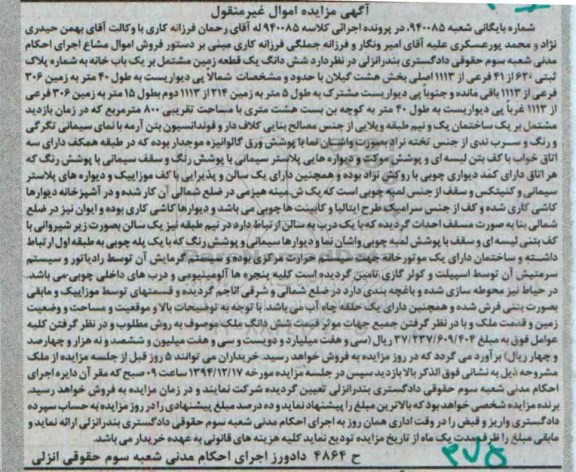 آگهی مزایده اموال غیرمنقول
شماره بایگانی شعبه ۹۴۰۰۸۵، در پرونده اجرائی کلاسه ۹۴۰۰۸۵ له آقای رحمان فرزانه کاری با وکالت آقای بهمن حیدری
نژاد و محمد پورعسکری علیه آقای امیر ونگار و فرزانه جملگی فرزانه کاری مبنی بر دستور فروش اموال مشاع اجرای احکام
مدنی شعبه سوم حقوقی دادگستری بندرانزلی در نظر دارد شش دانگ یک قطعه زمین مشتمل بر یک باب خانه به شماره پلاک
ثبتی ۶۲۰ از ۴۱ فرعی از ۱۱۱۳ اصلی بخش هشت گیلان با حدود و مشخصات شمالا پی دیواریست به طول ۴۰ متر به زمین ۳۰۶
فرعی از ۱۱۱۳ باقی مانده و جنوباً پی دیواریست مشترک به طول ۵ متر به زمین ۳۱۴ از ۱۱۱۳ دوم بطول ۱۵ متر به زمین ۳۰۶ فرعی
از ۱۱۱۳ غرباً پی دیواریست به طول ۴۰ متر به کوچه بن بست هشت متری با مساحت تقریبی ۸۰۰ مترمربع که در زمان بازدید
مشتمل بر یک ساختمان یک و نیم طبقه ویلایی از جنس مصالح بنایی کلاف دار و فونداسیون بتن آرمه با نمای سیمانی تگرگی
و رنگ و سرب ندی از جنس تخته نراد بصورت واشان نما با پوشش ورق گالوانیزه موجدار بوده که در طبقه همکف دارای سه
اتاق خواب با کف بتن لیسه ای و پوشش موکت و دیواره هایی پلاستر سیمانی با پوشش رنگ و سقف سیمانی با پوشش رنگ که
هر اتاق دارای کمد دیواری چوبی با روکش نراد بوده و همچنین دارای یک سالن و پذیرایی با کف موزاییک و دیواره های پلاستر
سیمانی و کنیتکس و سقف از جنس لمبه چوبی است که یک شمینه هیزمی در ضلع شمالی آن کار شده و در آشپزخانه دیوارها
کاشی کاری شده و کف از جنس سرامیک طرح ایتالیا و کابینت ها چوبی می باشد و دیوارها کاشی کاری بوده و ایوان نیز در ضلع
شمالی بنا به صورت مسقف احداث گردیده که با یک درب به سالن ارتباط دارد در نیم طبقه نیز یک سالن بصورت زیر شیروانی با
کف بتنی لیسه ای و سقف با پوشش لمبه چوبی واشان نما و دیوارها سیمانی و پوشش رنگ که با یک پله چوبی به طبقه اول ارتباط
داشته و ساختمان دارای یک موتورخانه جهت سیستم حرارت مرکزی بوده و سیستم گرمایش آن توسط رادیاتور و سیستم
سرمتیش آن توسط اسپیلت و کولر گازی تامین گردیده است کلیه پنجره ها آلومینیومی و درب های داخلی چوبی می باشد.
در حیاط نیز محوطه سازی شده و باغچه بندی دارد در ضلع شمالی و شرقی انجام گردیده و قسمتهای توسط موزاییک و مابقی
بصورت بتنی فرش شده و همچنین دارای یک حلقه چاه آب می باشد. با توجه به توضیحات بالا و موقعیت و مساحت و وضعیت
زمین و قدمت ملک و با در نظر گرفتن جمیع جهات موثر قیمت شش دانگ ملک موصوف به روش مطلوب و در نظر گرفتن کلیه
عوامل فوق به مبلغ ۳۷/۲۳۷/۶۰۹/۴۰۴ ریال (سی و هفت میلیارد و دویست و سی و هفت میلیون و ششصد و نه هزار و چهارصد
و چهار ریال) برآورد می گردد که در روز مزایده به فروش خواهد رسید. خریداران می توانند ۵ روز قبل از جلسه مزایده از ملک
مشروحه ذیل به نشانی فوق الذکر بالا بازدید سپس در جلسه مزایده مورخه ۱۳۹۴/۱۲/۱۷ ساعت ۰۹ صبح که مقر آن دایره اجرای
احکام مدنی شعبه سوم حقوقی دادگستری بندرانزلی تعیین گردیده شرکت نمایند و در زمان مزایده به فروش خواهد رسید.
برنده مزایده شخصی خواهد بود که بالاترین مبلغ را پیشنهاد نماید و ده درصد مبلغ پیشنهادی را در روز مزایده به حساب سپرده
دادگستری واریز و قبض را در وقت اداری همان روز به اجرای احکام مدنی شعبه سوم حقوقی دادگستری بندرانزلی ارائه نماید و
مابقی مبلغ را ظرف مدت یک ماه از تاریخ مزایده تودیع نماید کلیه هزینه های قانونی به عهده خریدار می باشد.
ح ۴۸۶۴ دادورز اجرای احکام مدنی شعبه سوم حقوقی انزلی